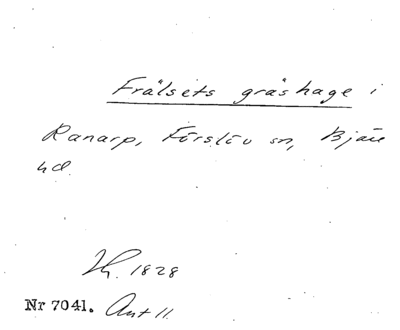 Frälsets gräshage i
Ranarp, Förslöv sn, Bjäre
hd.
Th. 1828
Nr 7041. Ant 11.